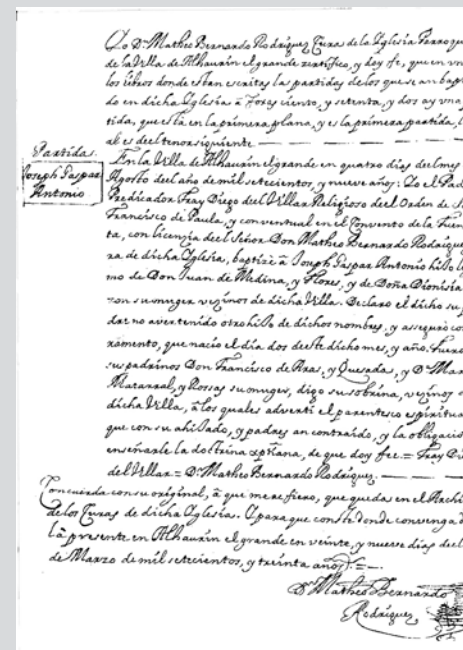 Yo Dn. Matheo Bernardo Rodriguez Cura de la Yglesia Parroqu
de la Villa de Alhaurin el grande zertifico, y doy fe, que en un
los libros donde estan escritas las partidas de los que se an bapt
do en dicha Yglesia â foxas ciento, y setenta, y dos ay una
tida, que està en la primera plana, y es la primera partida,
es del tenor siguiente
Partida
Joseph Gaspar
Antonio
En la Villa de Alhaurin el grande en quatro dias del mes
Agosto del año de mil setecientos, y nueve años: Yo el Pad
Predicador Fray Diego del Villar Religioso de el Orden de S
Francisco de Paula, y conventual en el Convento de la Fuen
ta, con licenzia del Señor Don Matheo Bernardo Rodrigue
ra de dicha Yglesia, baptizè â Joseph Gaspar Antonio hijo
mo de Don Juan de Medina, y Flores, y de Doña Dionisia
zon su muger vezinos de dicha Villa. Declaro el dicho su p
dre no aver tenido otro hijo de dichos nombres, y asseguro co
ramento, que nacio el dia dos de este dicho mes, y año. Fuero
sus padrinos Don Francisco de Aras, y Quesada, y Da. Mar
Matarral, y Rossas su muger, digo su sobrina, vezinos
dicha Villa, â los quales adverti el parentesco espiritua
que con su ahijado, y padres an contraido, y la obligacio
enseñarle la doctrina xptiana, de que doy fee. = Fray Di
del Villar = Dn. Matheo Bernardo Rodriguez.
Concuerda con su original, â que me refiero, que queda en el Archi
de los Curas de dicha Yglesia. Y para que conste donde convenga d
la presente en Alhaurin el grande en veinte, y nueve dias del
de Marzo de mil setecientos, y treinta años. =
Dn. Matheo Bernardo
Rodriguez